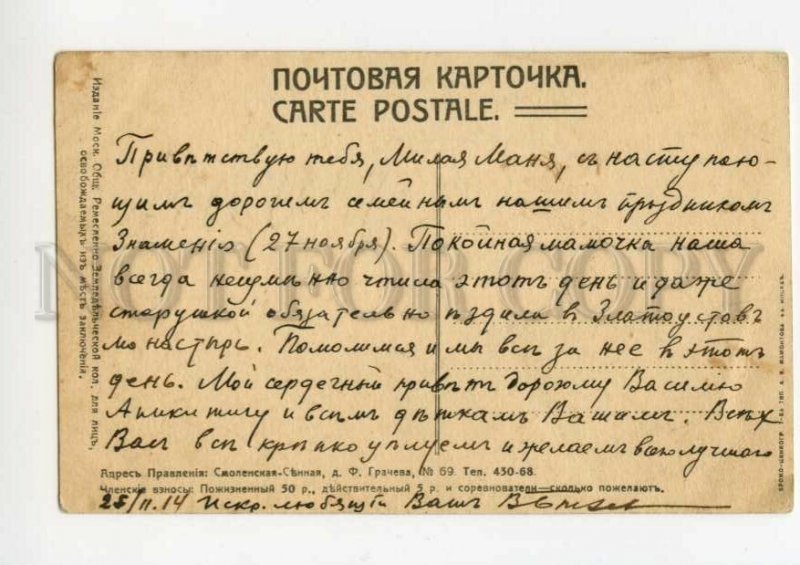 ПОЧТОВАЯ КАРТОЧКА.
CARTE POSTALE.
Привѣтствую тебя, Милая Маня, съ наступаю-
щимъ дорогимъ семейнымъ нашимъ праздникомъ
Знаменія (27 ноября). Покойная мамочка наша
всегда неизмѣнно чтила этотъ день и даже
старушкой обязательно ѣздила в Златоустовъ
монастырь. Помолимся и мы всѣ за нее в этотъ
день. Мой сердечный привѣтъ дорогому Василію
и всѣмъ дѣткамъ Вашимъ. Всѣхъ
Васъ всѣ крѣпко цѣлуемъ и желаемъ всего лучшаго
Адресъ Правленія: Смоленская-Сѣнная, д. Ф. Грачева, № 69. Тел. 450-68.
Членскіе взносы: Пожизненный 50 р., дѣйствительный 5 р. и соревнователи—сколько пожелаютъ.
25/11.14 Искр. любящій Васъ
Изданіе Моск. Общ. Ремесленно-Земледѣльческой кол. для лицъ,
освобождаемыхъ изъ мѣстъ заключенія.
NOT FOR COPY